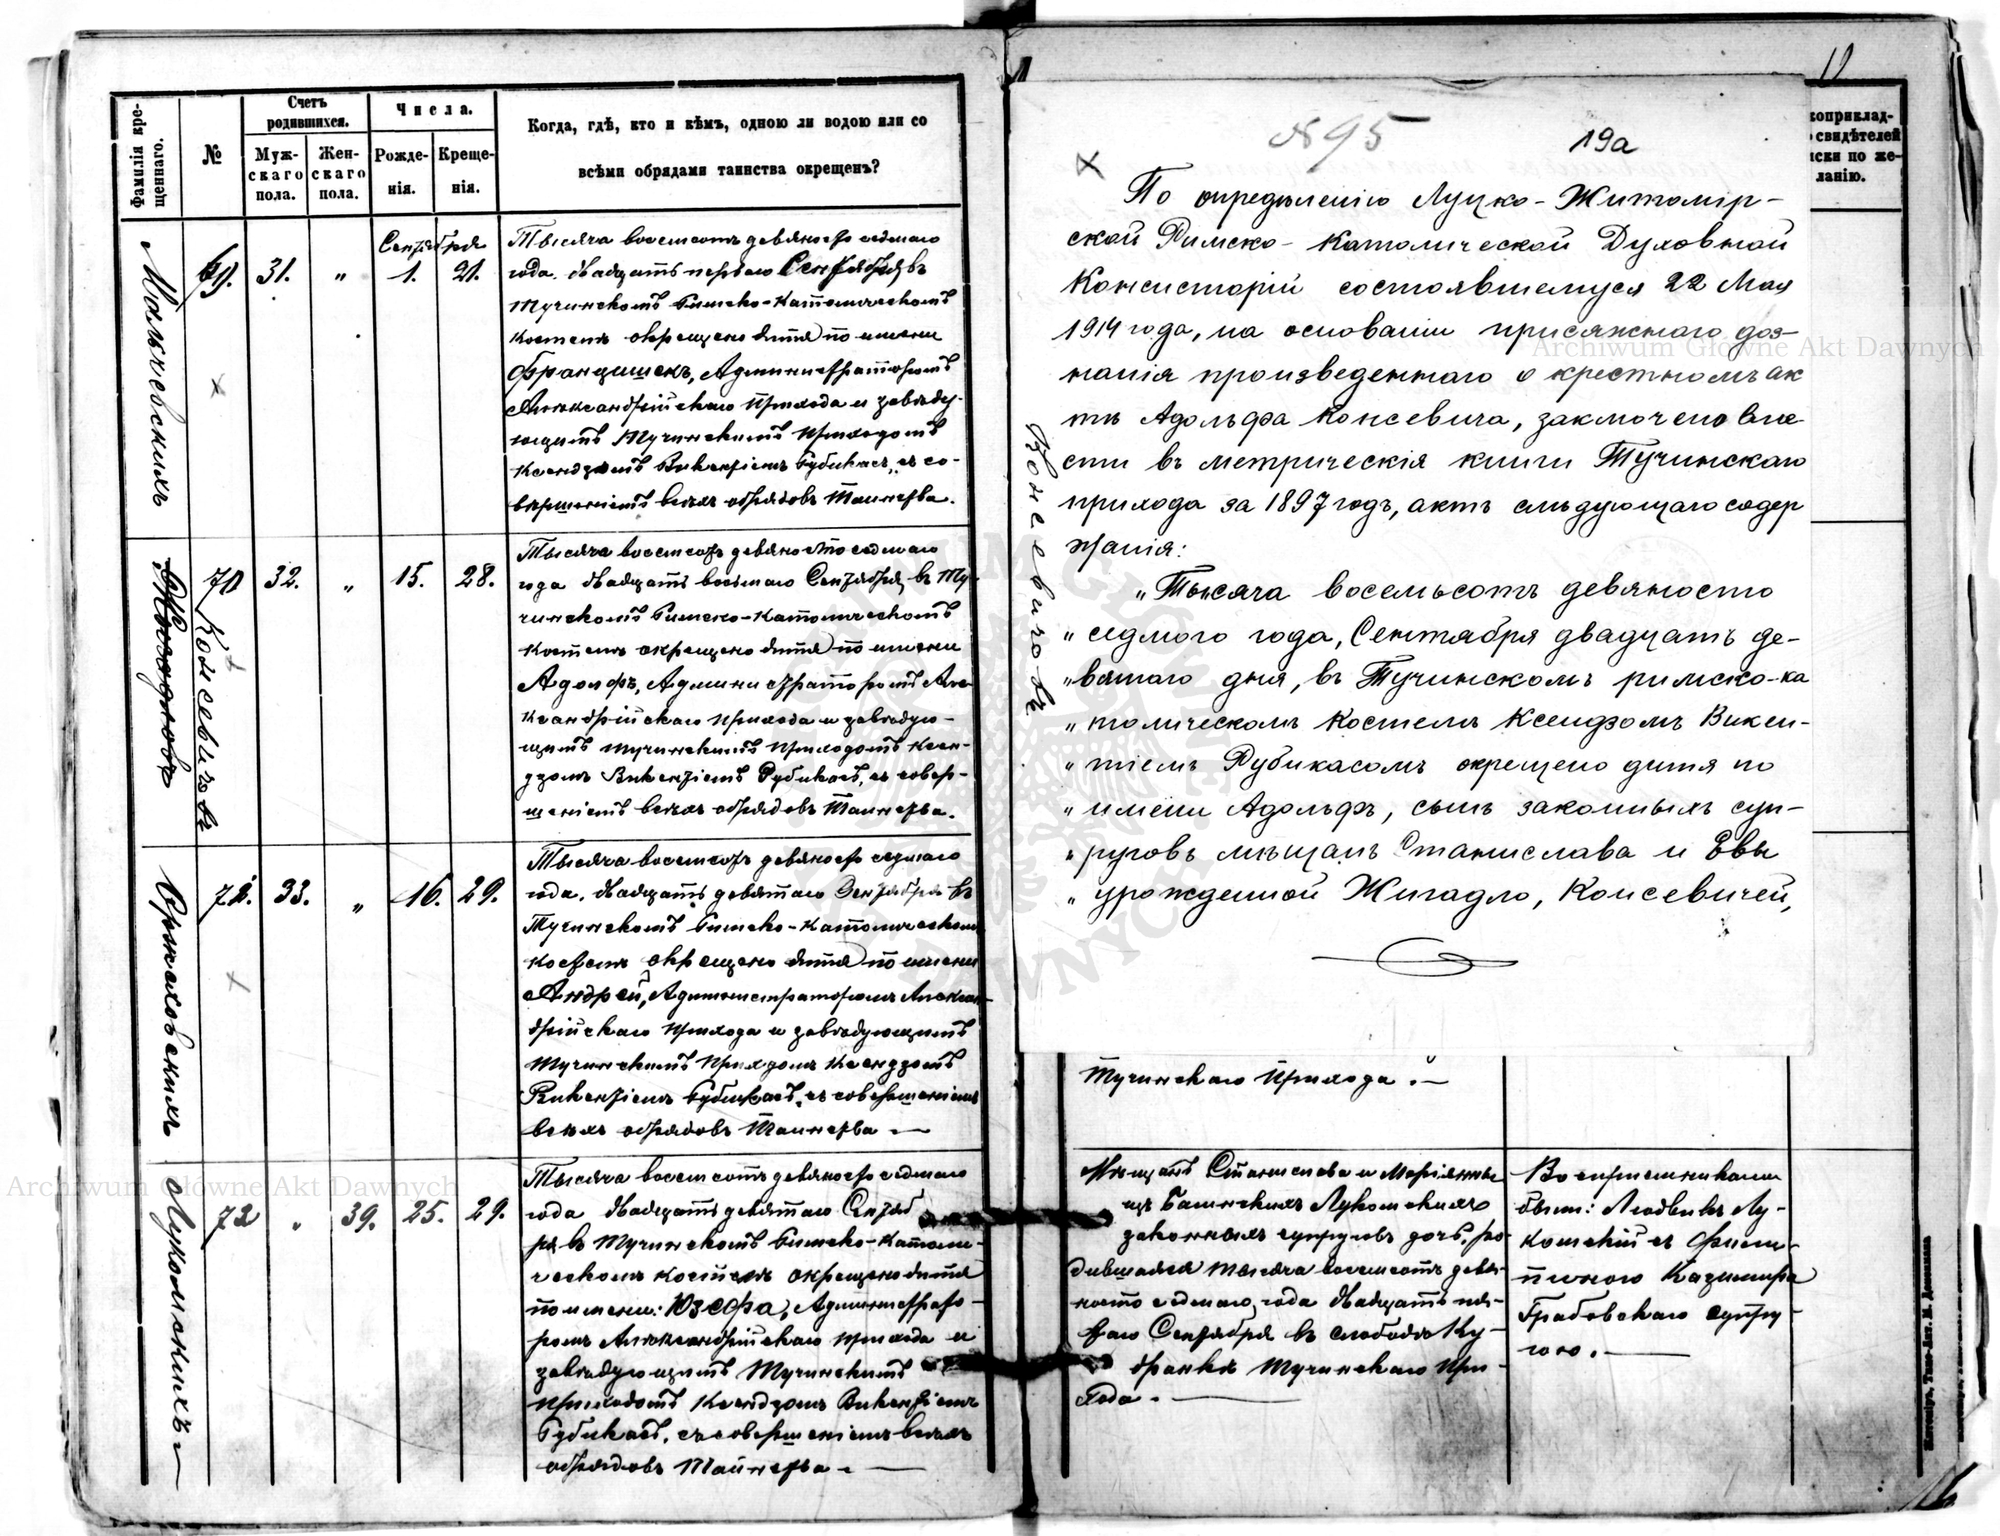 Фамилія кре-
щеннаго.
№
Счетъ
родившихся.
Муж-
скаго
пола.
Жен-
скаго
пола.
Числа.
Рожде-
нія.
Креще-
нія.
Когда, гдѣ, кто и кѣмъ, одною ли водою или со
всѣми обрядами таинства окрещенъ?
Мальчевскихъ
69.
31.
"
Сентября
1.
21.
Тысяча восемсотъ девяносто седмаго
года двадцать перваго Сентября, въ
Тучинскомъ Римско-Католическомъ
костелѣ окрещено дитя по имени
Францишекъ, Администраторомъ
Александрійскаго прихода и завѣду-
ющимъ Тучинскимъ приходомъ
Ксендзомъ Викентіемъ Рубикасъ, съ со-
вершеніемъ всѣхъ обрядовъ Таинства.
Консевичовъ
70
32.
"
15.
28.
Тысяча восемсотъ девяносто седмаго
года двадцать восьмаго Сентября, въ Ту-
чинскомъ Римско-Католическомъ
костелѣ окрещено дитя по имени
Адольфъ, Администраторомъ Але-
ксандрійскаго прихода и завѣдую-
щимъ Тучинскимъ приходомъ Ксен-
дзомъ Викентіемъ Рубикасъ, съ совер-
шеніемъ всѣхъ обрядовъ Таинства.
71.
33.
"
16.
29.
Тысяча восемсотъ девяносто седмаго
года, двадцать девятаго Сентября въ
Тучинскомъ Римско-Католическомъ
костелѣ окрещено дитя по имени
Андрей, Администраторомъ Алексан-
дрійскаго прихода и завѣдующимъ
Тучинскимъ приходомъ Ксендзомъ
Викентіемъ Рубикасъ, съ совершеніемъ
всѣхъ обрядовъ Таинства.—
Лукомскихъ
72
"
39.
25.
29.
Тысяча восемсотъ девяносто седмаго
года двадцать девятаго Сентяб
ря въ Тучинскомъ Римско-Католи-
ческомъ костелѣ окрещено дитя
по имени: Юзефа, Администрато-
ромъ Александрійскаго прихода и
завѣдующимъ Тучинскимъ
приходомъ Ксендзомъ Викентіемъ
Рубикасъ, съ совершеніемъ всѣхъ
обрядовъ Таинства.—
№ 95
19а
Консевичовъ
По опредѣленію Луцко-Житомір-
ской Римско-Католической Духовной
Консисторіи состоявшемуся 22 Мая
1914 года, на основаніи присяжнаго доз-
нанія произведеннаго о крестномъ ак
тѣ Адольфа Консевича, заключено вне-
сти въ метрическія книги Тучинскаго
прихода за 1897 годъ, актъ слѣдующаго содер
жанія:
„Тысяча восемьсотъ девяносто
„седмого года, Сентября двадцать де-
„вятаго дня, въ Тучинскомъ римско-ка
„толическомъ костелѣ Ксендзомъ Викен-
„тіемъ Рубикасомъ окрещено дитя по
„имени Адольфъ, сынъ законныхъ суп-
„руговъ мѣщанъ Станислава и Евы
„урожденной Жигадло, Консевичей,
коприклад-
свидѣтелей
иски по же-
ланію.
Тучинскаго прихода.—
Мѣщанъ Станислава и Маріянны
изъ Лукомскихъ
законныхъ супруговъ дочь, ро-
дившаяся тысяча восемсотъ девя-
носто седмаго года двадцать пя-
таго Сентября въ слободѣ Ку-
дранкѣ Тучинскаго при-
хода.—
Воспріемниками
были: Людвикъ Лу-
комскій съ
Казимира
Грабовскаго супру-
гою.—
Archiwum Główne Akt Dawnych
Archiwum Główne Akt Dawnych